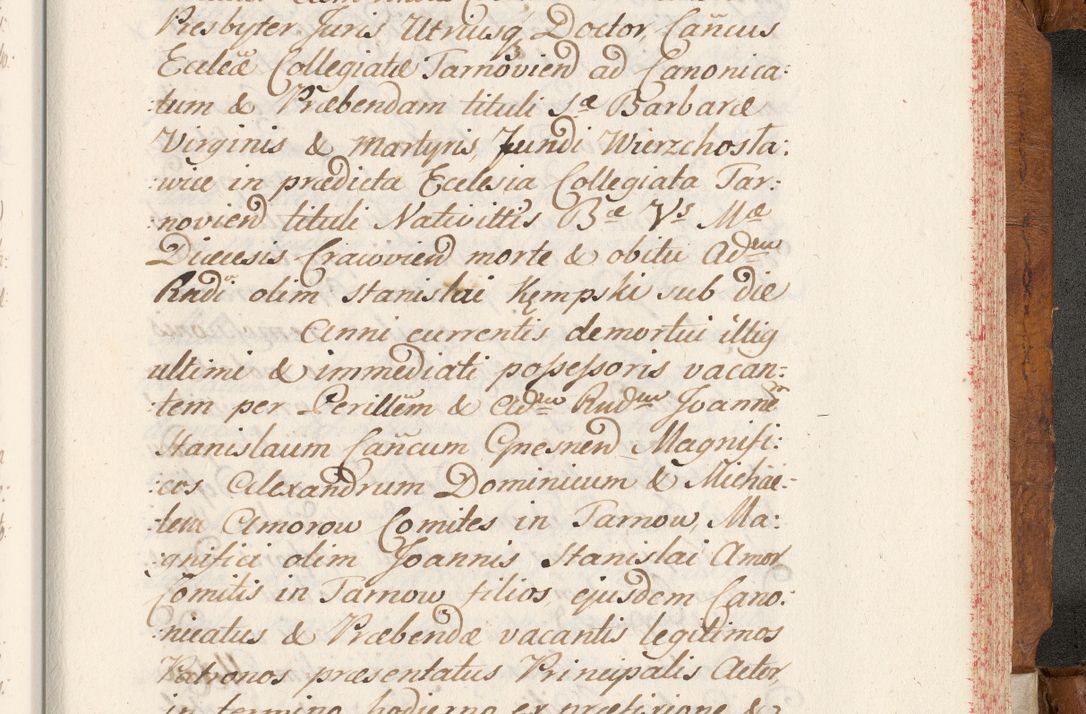 Presbyter Juris Utriusq, Doctor, Cañcus
Eccleæ Collegiatæ Tarnovien ad Canonica:
:tum & Præbendam tituli Sæ Barbaræ
Virginis & Martyris, Fundi Wierzchosła:
:wice in prædicta Ecclesia Collegiata Tar:
:novien tituli Nativittis Bæ Vs Mæ
Diæcesis Cracovien morte & obitu Adm
Rndi olim Stanislai Kępski sub die
Anni currentis demortui illig
ultimi & immediati possessoris vacan=
:tem per Perillem & Adm Rndm Joannem
Stanislaum Cañcum Gnesnen Magnifi:
:cos Alexandrum Dominicum & Michae-
:lem Amorow Comites in Tarnow, Ma:
:gnifici olim Joannis Stanislai Amor
Comitis in Tarnow filios ejusdem Cano:
:nicatus & Præbendæ vacantis legitimos
Patronos præsentatus Principalis Actor,
in termino hodierno ex præfixione &